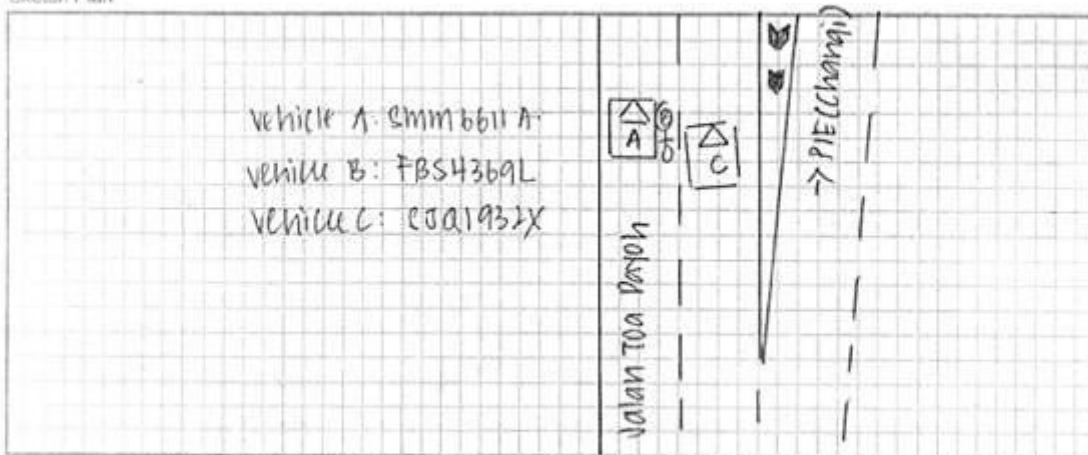 Sketch Plan
Vehicle A: SMM6611A
Vehicle B: FBS4369L
Vehicle C: SJQ1932X
A
B
C
Jalan Toa Payoh
→ PIE(Changi)